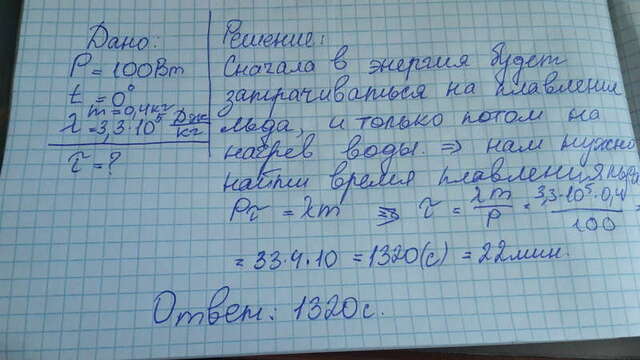 Дано:
P = 100Вт
t = 0°
m = 0,4 кг
λ = 3,3·10⁵ Дж/кг
τ = ?
Решение:
Сначала в энергия будет
затрачиваться на плавление
льда, и только потом на
нагрев воды. ⇒ нам нужно
найти время плавления льда
Pτ = λm ⇒ τ = λm/P = 3,3·10⁵·0,4/100 =
= 33·4·10 = 1320(с) = 22 мин.
Ответ: 1320 с.